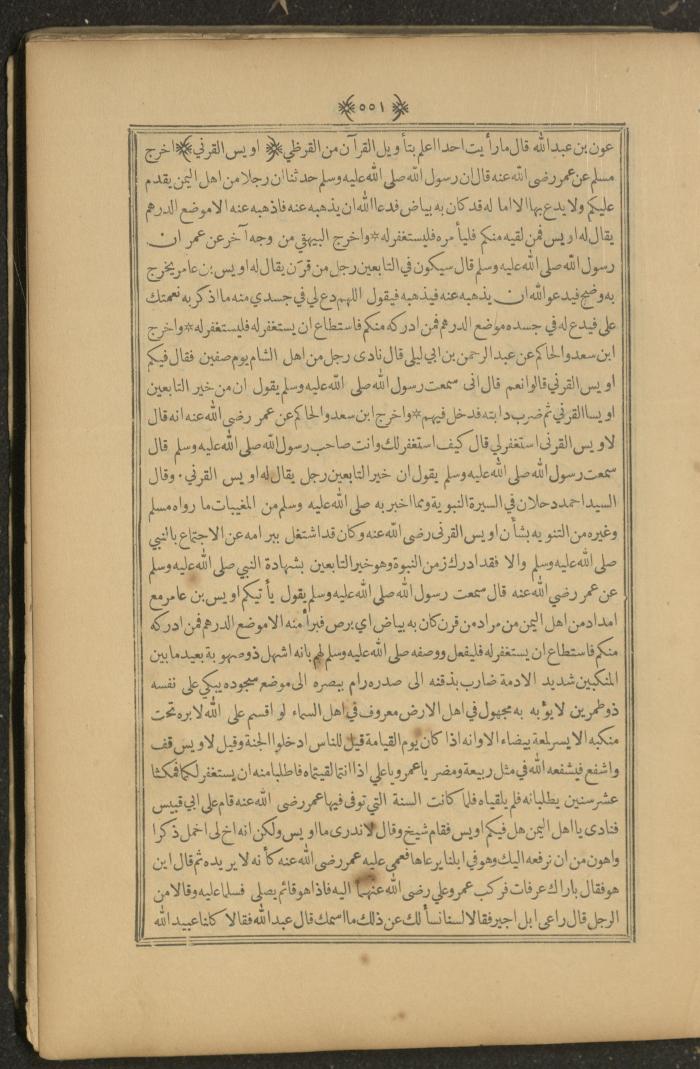 ﴿ ٥٥١ ﴾
عون بن عبد الله قال ما رأيت احدا اعلم بتأويل القرآن من القرظي ﴿ اويس القرني ﴾ اخرج
مسلم عن عمر رضى الله عنه قال ان رسول الله صلى الله عليه وسلم حدثنا ان رجلا من اهل اليمن يقدم
عليكم ولا يدع بها الا اما له قد كان به بياض فدعا الله ان يذهبه عنه فاذهبه عنه الا موضع الدرهم
يقال له اويس فمن لقيه منكم فليأمره فليستغفر له * واخرج البيهقي من وجه آخر عن عمر ان
رسول الله صلى الله عليه وسلم قال سيكون في التابعين رجل من قرن يقال له اويس بن عامر يخرج
به وضح فيدعو الله ان يذهبه عنه فيذهبه فيقول اللهم دع لي في جسدي منه ما اذكر به نعمتك
على فيدع له في جسده موضع الدرهم فمن ادركه منكم فاستطاع ان يستغفر له فليستغفر له * واخرج
ابن سعد والحاكم عن عبد الرحمن بن ابي ليلى قال نادى رجل من اهل الشام يوم صفين فقال فيكم
اويس القرني قالوا نعم قال انى سمعت رسول الله صلى الله عليه وسلم يقول ان من خير التابعين
اويسا القرني ثم ضرب دابته فدخل فيهم * واخرج ابن سعد والحاكم عن عمر رضى الله عنه انه قال
لاويس القرنى استغفر لي قال كيف استغفر لك وانت صاحب رسول الله صلى الله عليه وسلم قال
سمعت رسول الله صلى الله عليه وسلم يقول ان خير التابعين رجل يقال له اويس القرني . وقال
السيد احمد دحلان في السيرة النبوية ومما اخبر به صلى الله عليه وسلم من المغيبات ما رواه مسلم
وغيره من التنويه بشأن اويس القرنى رضى الله عنه وكان قد اشتغل ببر امه عن الاجتماع بالنبي
صلى الله عليه وسلم والا فقد ادرك زمن النبوة وهو خير التابعين بشهادة النبي صلى الله عليه وسلم
عن عمر رضي الله عنه قال سمعت رسول الله صلى الله عليه وسلم يقول يأتيكم اويس بن عامر مع
امداد من اهل اليمن من مراد من قرن كان به بياض اي برص فبرأ منه الا موضع الدرهم فمن ادركه
منكم فاستطاع ان يستغفر له فليفعل ووصفه صلى الله عليه وسلم لهم بانه اشهل ذو صهوبة بعيد ما بين
المنكبين شديد الادمة ضارب بذقنه الى صدره رام ببصره الى موضع سجوده يبكي على نفسه
ذو طمرين لا يؤبه به مجهول في اهل الارض معروف في اهل السماء لو اقسم على الله لابره تحت
منكبه الايسر لمعة بيضاء الا وانه اذا كان يوم القيامة قيل للناس ادخلوا الجنة وقيل لاويس قف
واشفع فيشفعه الله في مثل ربيعة ومضر يا عمر ويا علي اذا انتما لقيتماه فاطلبا منه ان يستغفر لكما فمكثا
عشر سنين يطلبانه فلم يلقياه فلما كانت السنة التي توفى فيها عمر رضى الله عنه قام على ابي قبيس
فنادى يا اهل اليمن هل فيكم اويس فقام شيخ وقال لا ندرى ما اويس ولكن ابن اخ لى اخمل ذكرا
واهون من ان نرفعه اليك وهو في ابلنا يرعاها فعمى عليه عمر رضى الله عنه كأنه لا يريده ثم قال اين
هو فقال باراك عرفات فركب عمر وعلي رضى الله عنهما اليه فاذا هو قائم يصلى فسلما عليه وقالا من
الرجل قال راعى ابل اجير فقالا لسنا نسألك عن ذلك ما اسمك قال عبد الله فقالا كلنا عبيد الله